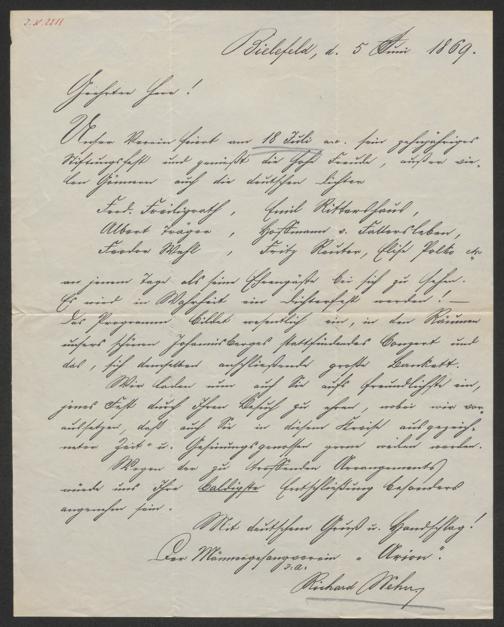 Bielefeld, d. 5 Juni 1869.
Geehrter Herr!
Unser Verein feiert am 18 Juli a.c. sein zehnjähriges
Stiftungsfest und genießt die hohe Freude, außer vie-
len Gönnern auch die deutschen Dichter
Ferd. Freiligrath, Emil Rittershaus,
Albert Träger, Hoffmann v. Fallersleben,
Feodor Wehl, Fritz Reuter, Elise Polko etc
an jenem Tage als seine Ehrengäste bei sich zu sehen.
Es wird in Wahrheit ein Dichterfest werden! —
Das Programm bildet wesentlich ein, in den Räumen
unsers schönen Johannisberges stattfindendes Concert und
das, sich demselben anschließende große Bankett.
Wir laden nun auch Sie aufs freundlichste ein,
jenes Fest durch Ihren Besuch zu ehren, wobei wir vor-
aussetzen, daß auch Sie in diesem Kreise ausgezeich-
neter Zeit- u. Gesinnungsgenossen gerne weilen werden.
Wegen der zu treffenden Arrangements
würde uns Ihre baldigste Entschließung besonders
angenehm sein.
Mit deutschem Gruß u. Handschlag!
Der Männergesangverein "Arion".
Richard